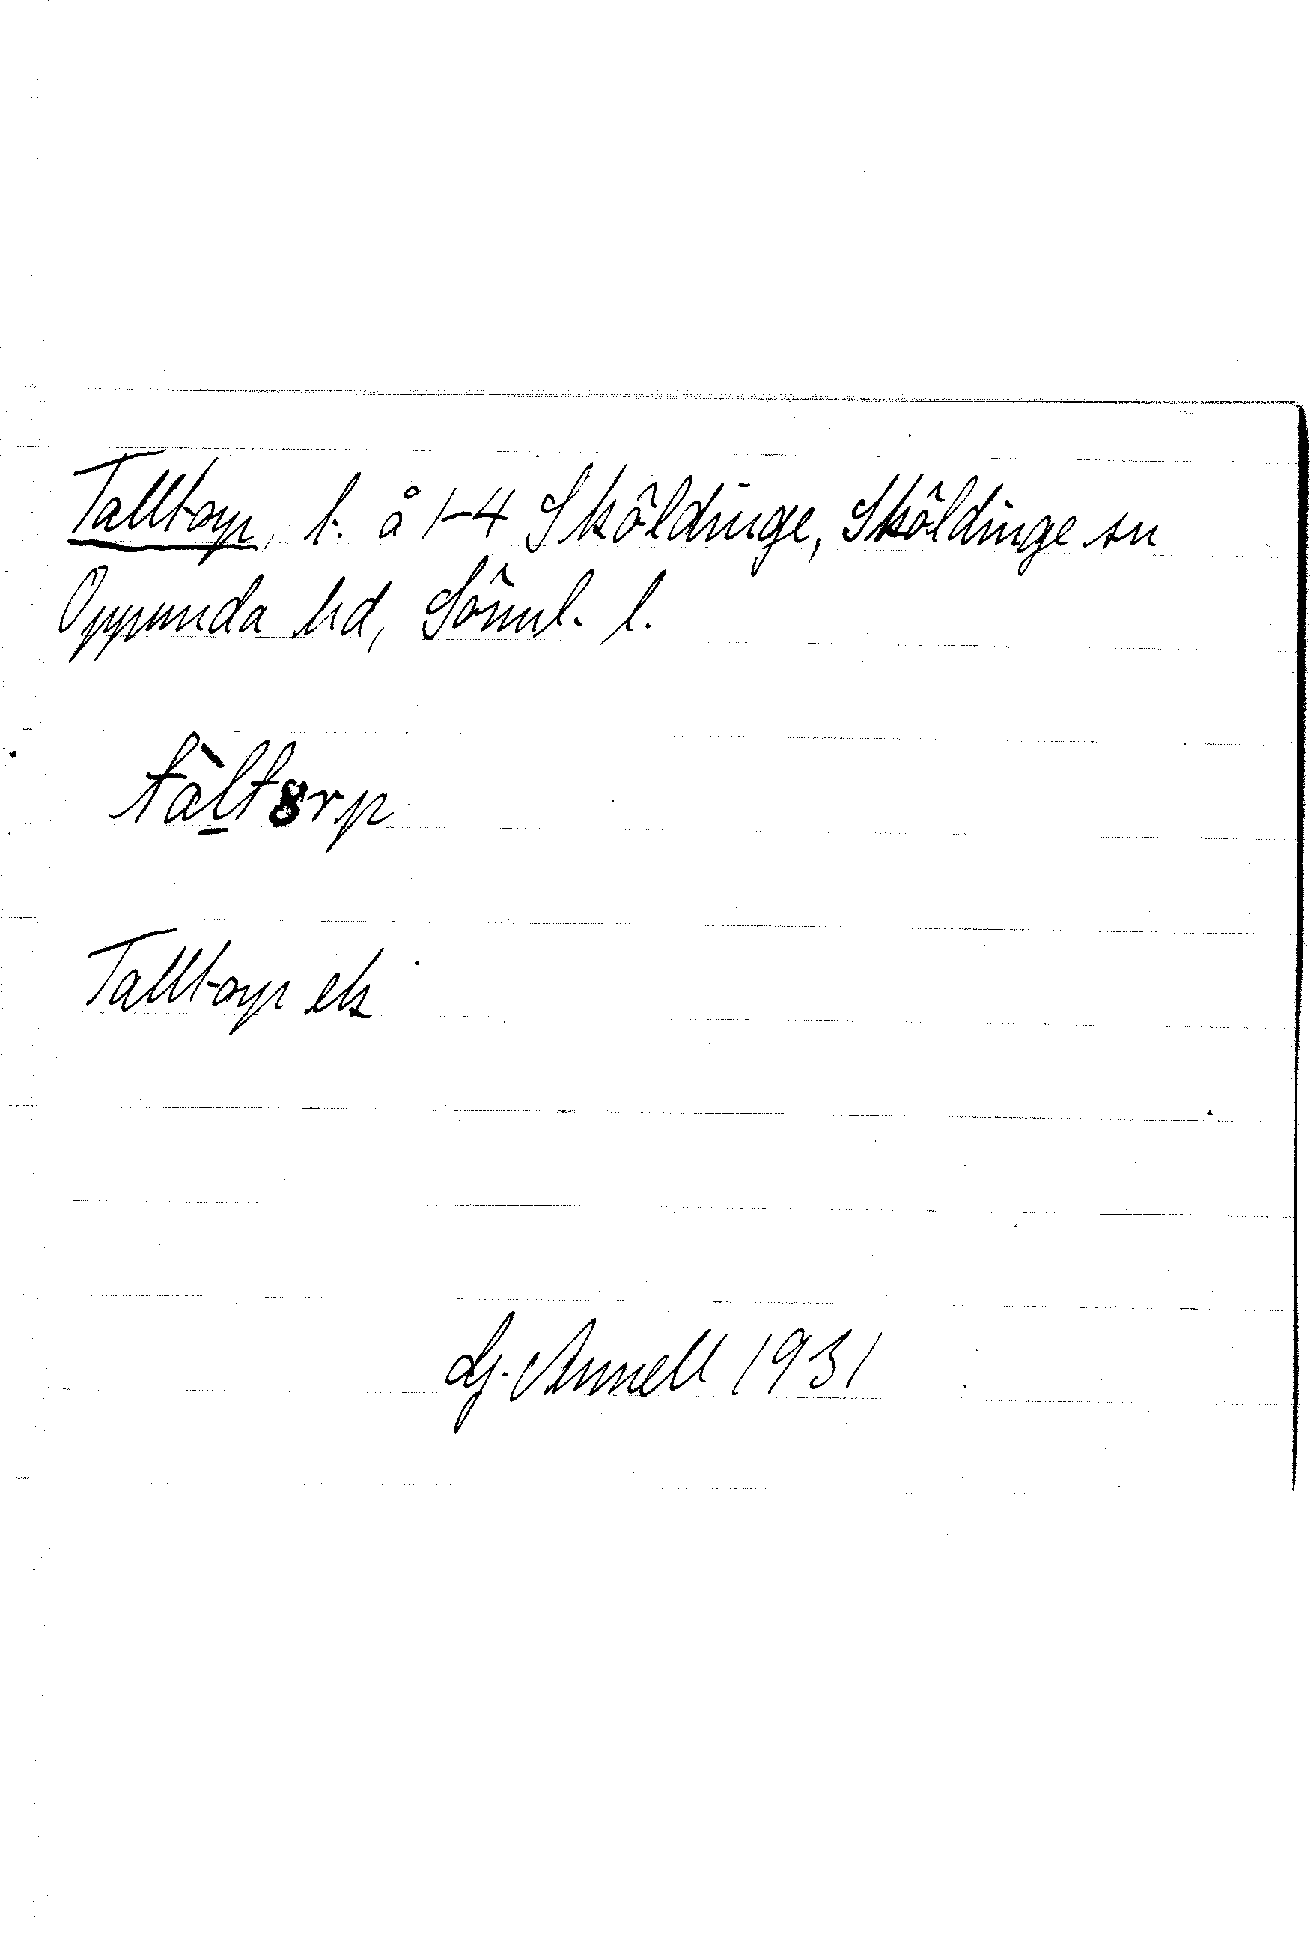 Talltorp, t. å 1-4 Sköldinge, Sköldinge sn
Oppunda hd, Söml. l.
tàl̲tȣrp
Talltorp ek
G. Annell 1931